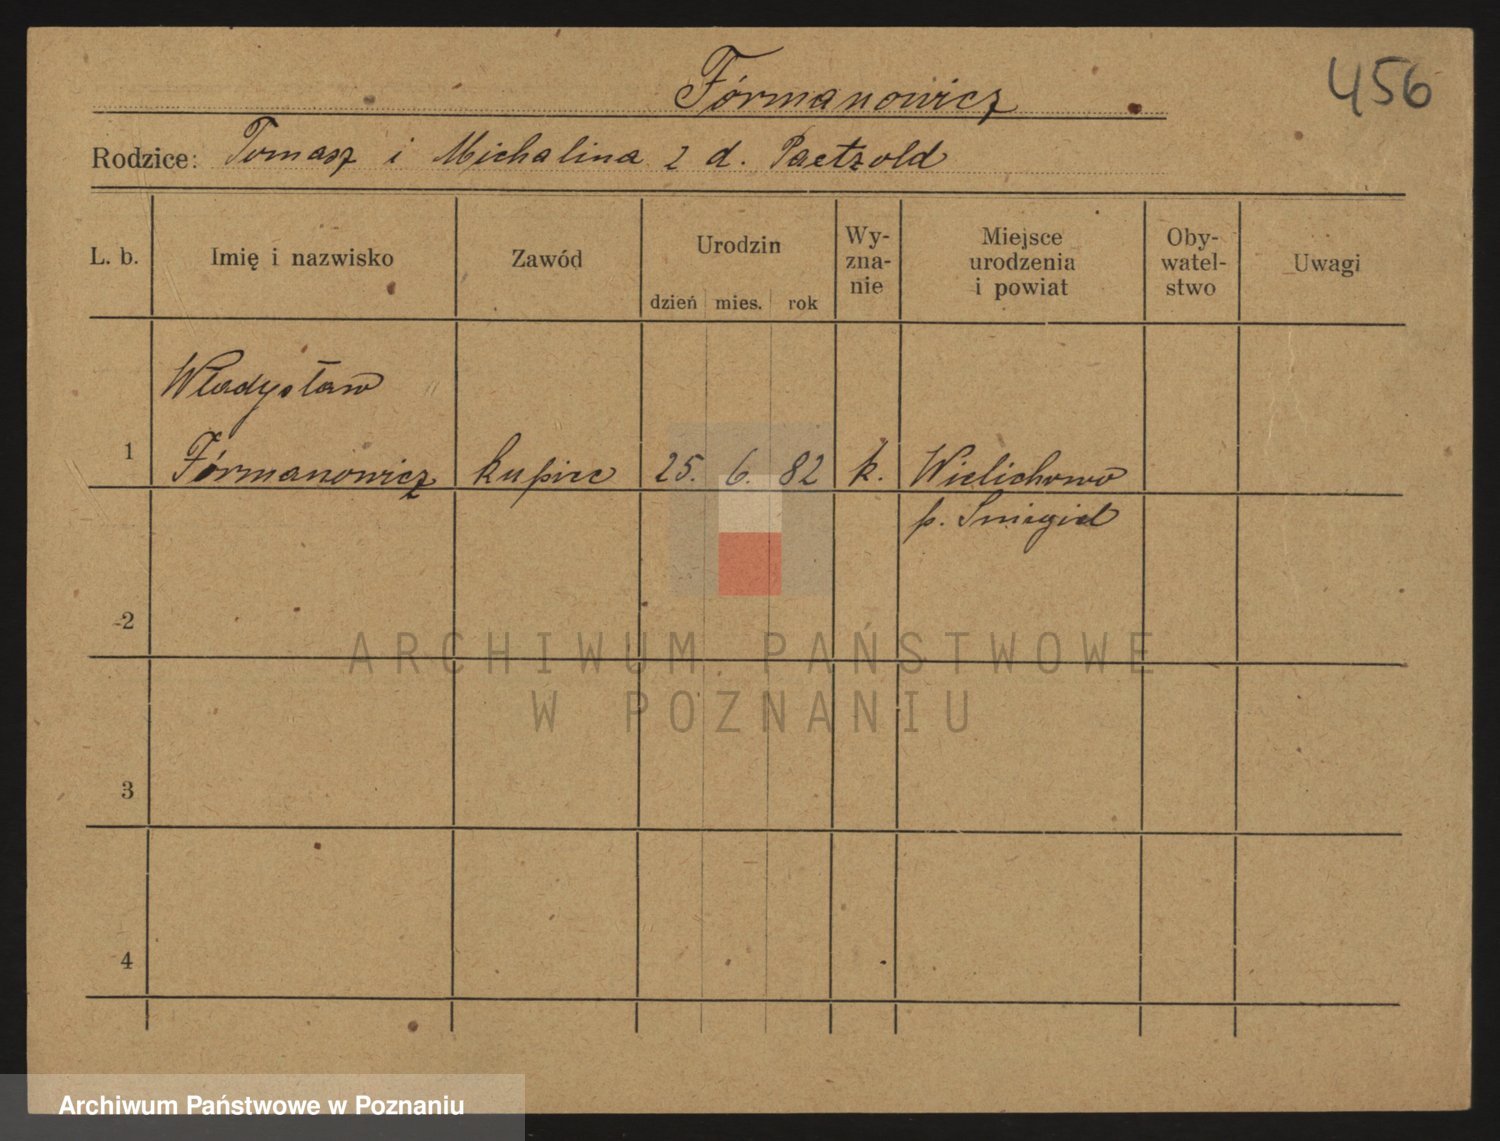 Fórmanowicz
456
Rodzice: Tomasz i Michalina z d. Paetzold
L. b. Imię i nazwisko Zawód Urodzin dzień mies. rok Wy-zna-nie Miejsce urodzenia i powiat Oby-watel-stwo Uwagi
Władysław
1 Fórmanowicz kupiec 25. 6. 82 k. Wielichowo
p. Śmigiel
2
ARCHIWUM PAŃSTWOWE
W POZNANIU
3
4
Archiwum Państwowe w Poznaniu